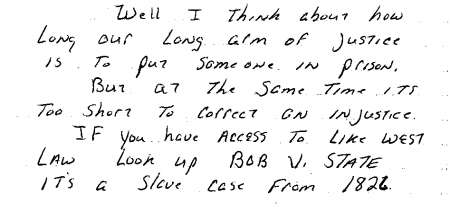 Well I Think about how
Long our Long arm of Justice
is To put someone in prison.
But at The Same Time it's
Too Short To Correct an injustice.
IF you have Access To Like West
Law Look up Bob V. State
it's a Slave case From 1826.